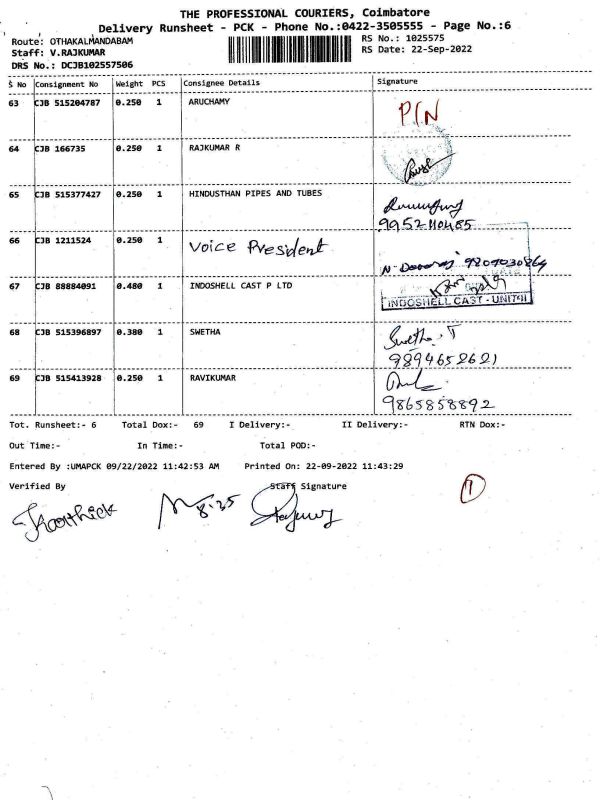 THE PROFESSIONAL COURIERS, Coimbatore
Delivery Runsheet - PCK - Phone No.:0422-3505555 - Page No.:6
Route: OTHAKALMANDABAM RS No.: 1025575
Staff: V.RAJKUMAR RS Date: 22-Sep-2022
DRS No.: DCJB102557506
S No Consignment No Weight PCS Consignee Details Signature
63 CJB 515204787 0.250 1 ARUCHAMY PIN
64 CJB 166735 0.250 1 RAJKUMAR R
65 CJB 515377427 0.250 1 HINDUSTHAN PIPES AND TUBES
66 CJB 1211524 0.250 1 Voice President
67 CJB 88884091 0.480 1 INDOSHELL CAST P LTD
INDOSHELL CAST - UNIT-II
68 CJB 515396897 0.380 1 SWETHA Swetha. T
9894652621
69 CJB 515413928 0.250 1 RAVIKUMAR
9865858892
Tot. Runsheet:- 6 Total Dox:- 69 I Delivery:- II Delivery:- RTN Dox:-
Out Time:- In Time:- Total POD:-
Entered By :UMAPCK 09/22/2022 11:42:53 AM Printed On: 22-09-2022 11:43:29
Verified By Staff Signature
Karthick 8.35